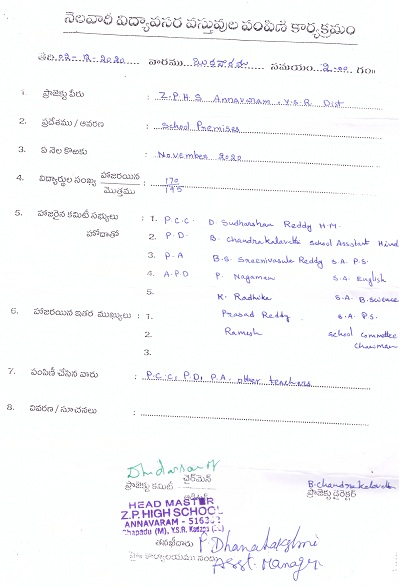 నెలవారీ విద్యావసర వస్తువుల పంపిణీ కార్యక్రమం
తేది: 02-12-2020 వారము బుధవారము సమయం 2.00 గం॥
1. ప్రాజెక్టు పేరు : Z.P.H.S Annavaram, Y.S.R Dist
2. ప్రదేశము / ఆవరణ : School Premises
3. ఏ నెల కొఱకు : November 2020
4. విద్యార్థుల సంఖ్య హాజరయిన / మొత్తము : 170 / 195
5. హాజరైన కమిటీ సభ్యులు : 1. P.C.C. D. Sudharshan Reddy H.M.
హోదాతో 2. P.D. B. Chandrakalavathi School Assistant Hindi
3. P.A B.S. Sreenivasula Reddy S.A. P.S.
4. A.P.D P. Nagamani S.A. English
5. K. Radhika S.A. B.Science
6. హాజరయిన ఇతర ముఖ్యులు : 1. Prasad Reddy S.A. P.S.
2. Ramesh School Committee Chairman
3.
7. పంపిణీ చేసిన వారు : P.C.C, P.D, P.A, other teachers
8. వివరణ / సూచనలు :
ప్రాజెక్టు కమిటీ ఛైర్‌మెన్
B. Chandrakalavathi
ప్రాజెక్టు డైరెక్టర్
HEAD MASTER
Z.P. HIGH SCHOOL
ANNAVARAM - 516
Chapadu (M), Y.S.R. Kadapa
తనిఖీదారు P Dhanalakshmi
Asst. Manager